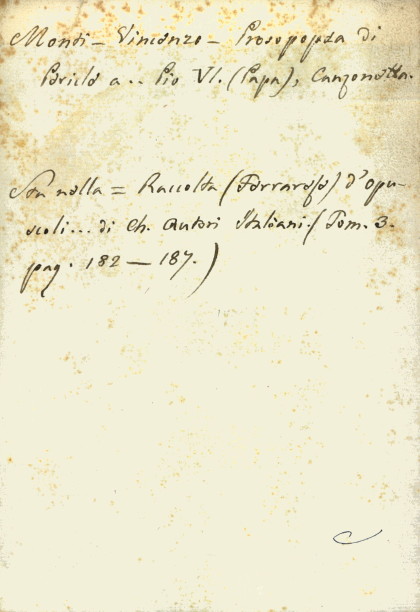 Monti - Vincenzo - Prosopopea di
Pericle a .. Pio VI. (Papa), Canzonetta.
Sta nella = Raccolta (Ferrarese) d'opu-
scoli... di Ch. Autori Italiani. (Tom. 3.
pag. 182 — 187.)